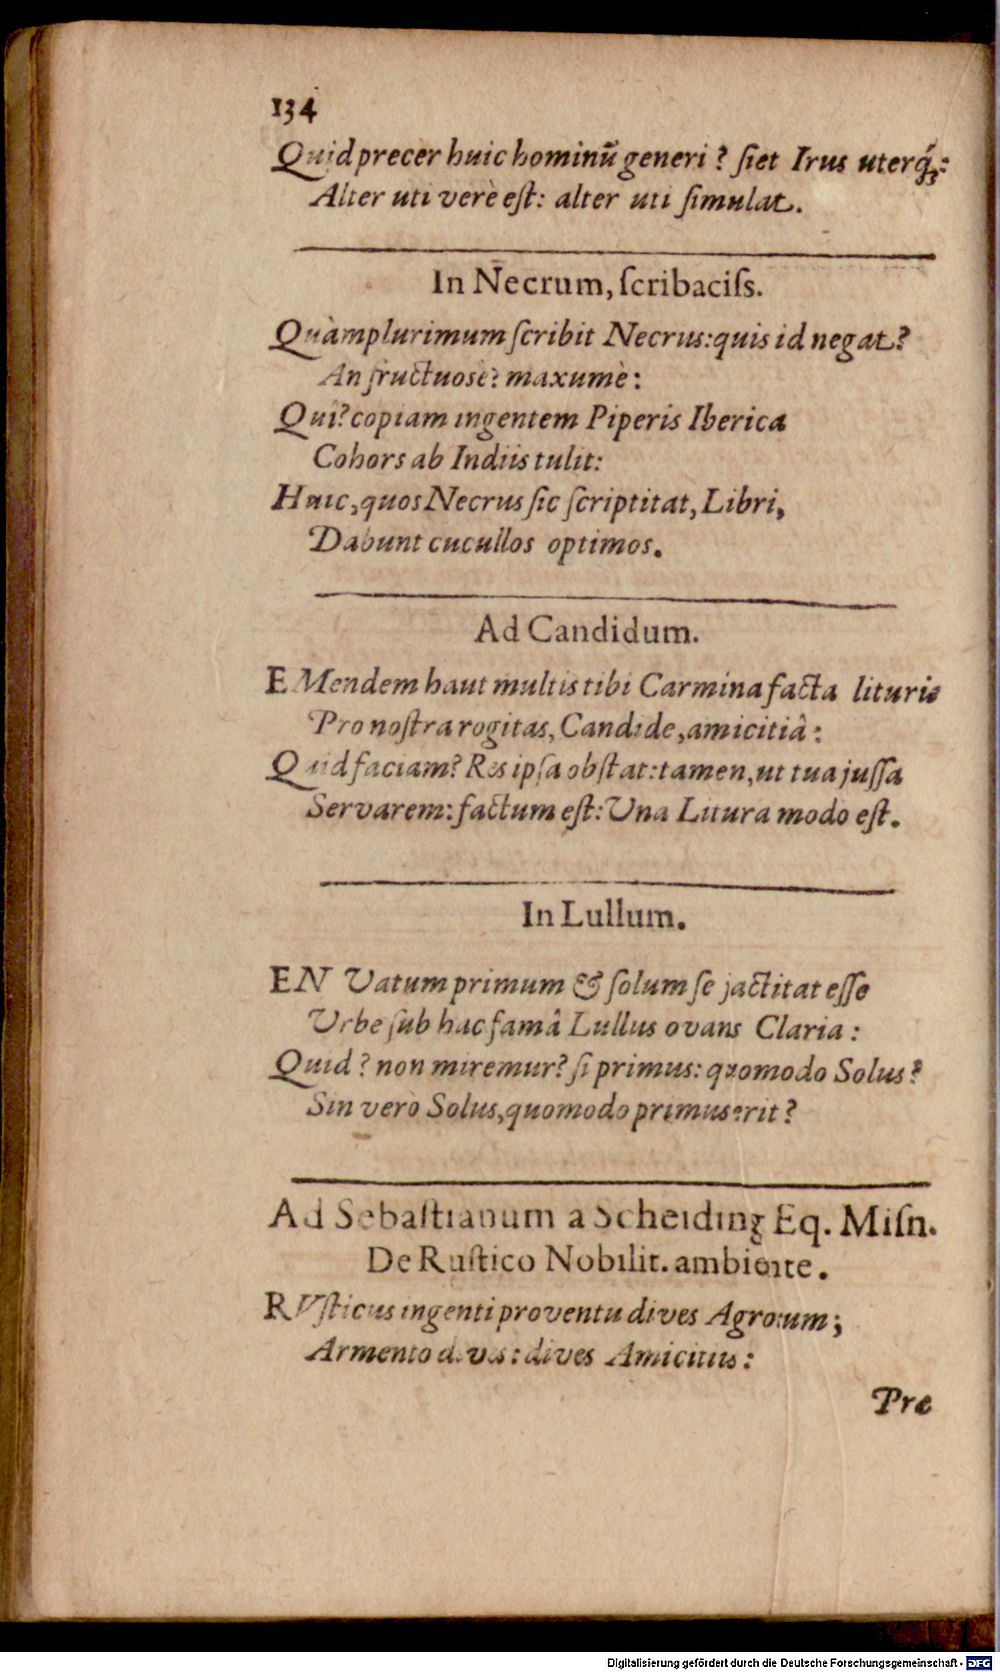 134
Quid precer huic hominũ generi? ſiet Irus uterq́;:
Alter uti verè eſt: alter uti ſimulat.
In Necrum, ſcribaciſs.
Quàmplurimum ſcribit Necrus: quis id negat?
An fructuosè? maxumè:
Qui? copiam ingentem Piperis Iberica
Cohors ab Indiis tulit:
Huic, quos Necrus ſic ſcriptitat, Libri,
Dabunt cucullos optimos.
Ad Candidum.
EMendem haut multis tibi Carmina facta lituris
Pro noſtra rogitas, Candide, amicitiâ:
Quid faciam? Res ipſa obſtat: tamen, ut tua juſſa
Servarem: factum eſt: Una Litura modò eſt.
In Lullum.
EN Vatum primum & ſolum ſe jactitat eſſe
Urbe ſub hac famâ Lullus ovans Claria:
Quid? non miremur? ſi primus: quomodo Solus?
Sin verò Solus, quomodo primus erit?
Ad Sebaſtianum à Scheiding Eq. Miſn.
De Ruſtico Nobilit. ambiente.
RVſticus ingenti proventu dives Agrorum;
Armento dives: dives Amicitiis:
Præ
Digitalisierung gefördert durch die Deutsche Forschungsgemeinschaft - DFG